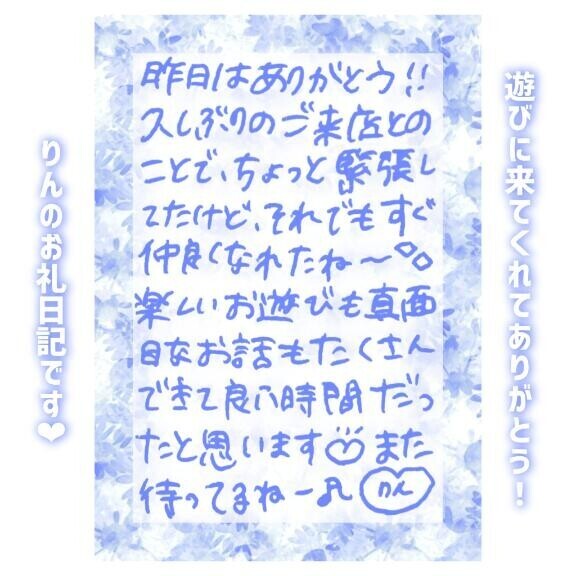 遊びに来てくれてありがとう！
昨日はありがとう!!
久しぶりのご来店との
ことで、ちょっと緊張し
てたけど、それでもすぐ
仲良くなれたね〜
楽しいお遊びも真面
目なお話もたくさん
できて良い時間だっ
たと思います また
待ってるねー♪ りん
りんのお礼日記です❤